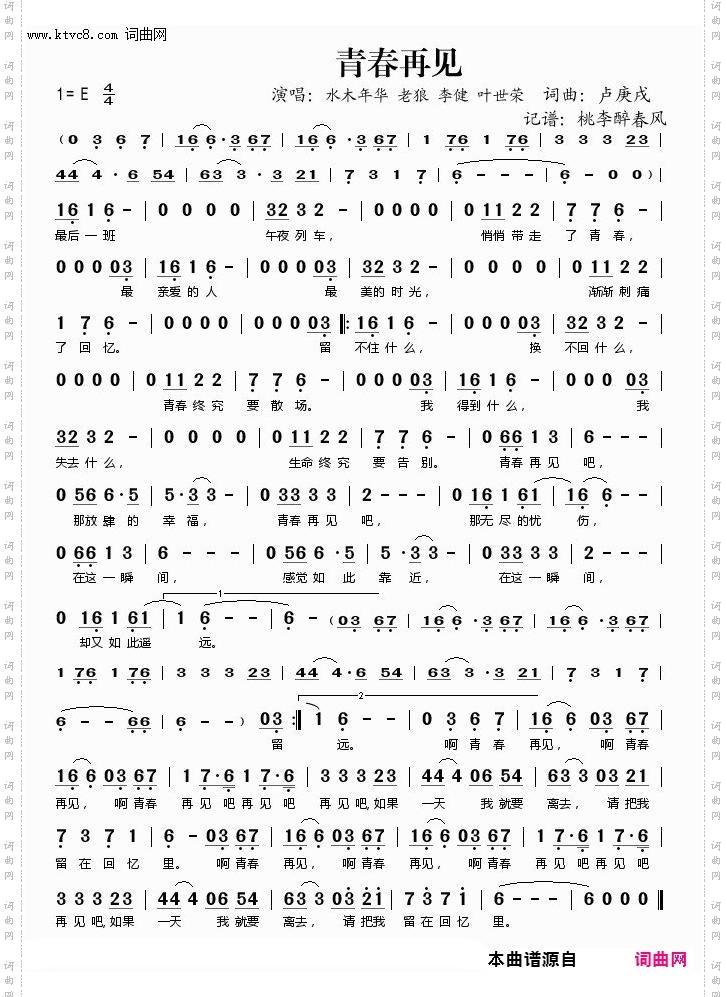 www.ktvc8.com 词曲网
青春再见
1=E 4/4
演唱：水木年华 老狼 李健 叶世荣 词曲：卢庚戌
记谱：桃李醉春风
(0 3 6 7 | 16 6·3 67 | 16 6·3 67 | 1 76 1 76 | 3 3 3 23 |
44 4·6 54 | 63 3·3 21 | 7 3 1 7 | 6 - - - | 6 - 0 0) |
16 1 6 - | 0 0 0 0 | 32 3 2 - | 0 0 0 0 | 0 11 2 2 | 7 7 6 - |
最后一班 午夜列车， 悄悄带走 了青春，
0 0 0 03 | 16 1 6 - | 0 0 0 03 | 32 3 2 - | 0 0 0 0 | 0 11 2 2 |
最 亲爱的人 最 美的时光， 渐渐刺痛
1 7 6 - | 0 0 0 0 | 0 0 0 03 ‖: 16 1 6 - | 0 0 0 03 | 32 3 2 - |
了回忆。 留 不住什么， 换 不回什么，
0 0 0 0 | 0 11 2 2 | 7 7 6 - | 0 0 0 03 | 16 1 6 - | 0 0 0 03 |
青春终究 要散场。 我 得到什么， 我
32 3 2 - | 0 0 0 0 | 0 11 2 2 | 7 7 6 - | 0 66 1 3 | 6 - - - |
失去什么， 生命终究 要告别。 青春再见 吧，
0 56 6·5 | 5·3 3 - | 0 33 3 3 | 2 - - - | 0 16 1 61 | 16 6 - - |
那放肆的 幸福， 青春再见 吧， 那无尽的忧 伤，
0 66 1 3 | 6 - - - | 0 56 6·5 | 5·3 3 - | 0 33 3 3 | 2 - - - |
在这一瞬 间， 感觉如此 靠近， 在这一瞬 间，
1
0 16 1 61 | 1 6 - - | 6 - (03 67 | 16 6·3 67 | 16 6·3 67 |
却又如此遥 远。
1 76 1 76 | 3 3 3 23 | 44 4·6 54 | 63 3·3 21 | 7 3 1 7 |
2
6 - - 66 | 6 - - ) 03 :‖ 1 6 - - | 0 3 6 7 | 16 6 03 67 |
留 远。 啊青春 再见， 啊青春
16 6 03 67 | 1 7·6 1 7·6 | 3 3 3 23 | 44 4 06 54 | 63 3 03 21 |
再见， 啊青春 再见吧再见吧 再见吧,如果 一天 我就要 离去， 请把我
7 3 7 1 | 6 - 03 67 | 16 6 03 67 | 16 6 03 67 | 1 7·6 1 7·6 |
留在回忆 里。啊青春 再见， 啊青春 再见， 啊青春 再见吧再见吧
3 3 3 23 | 44 4 06 54 | 63 3 03 21 | 7 3 7 1 | 6 - - - | 6 0 0 0 ‖
再见吧,如果 一天 我就要 离去， 请把我 留在回忆 里。
本曲谱源自 词曲网